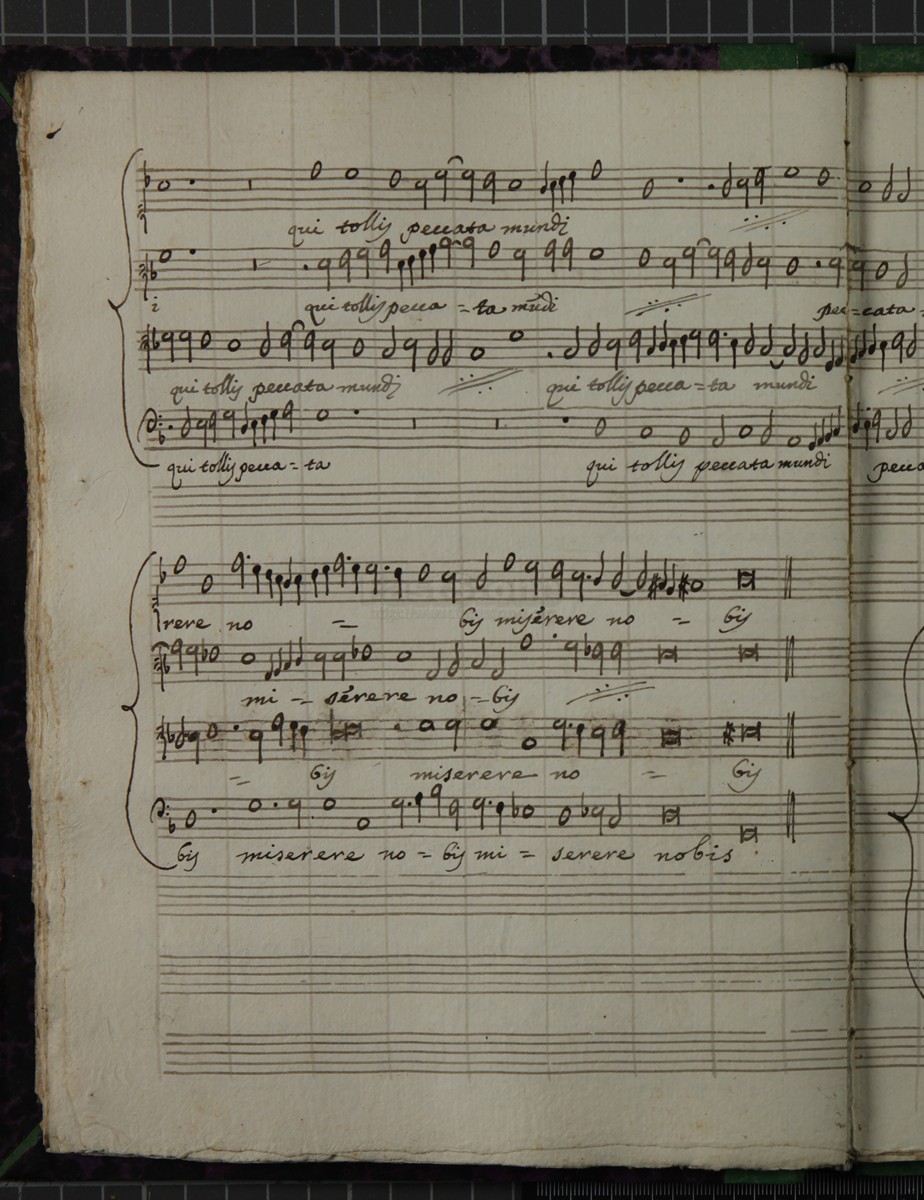 qui tollis peccata mundi
i qui tollis pecca = ta mūdi pec=cata =
qui tollis peccata mundi qui tollis pecca = ta mundi
qui tollis pecca = ta qui tollis peccata mundi pecca
rere no = bis miserere no = bis
mi = serere no = bis
= bis miserere no = bis
bis miserere no = bis mi = serere nobis